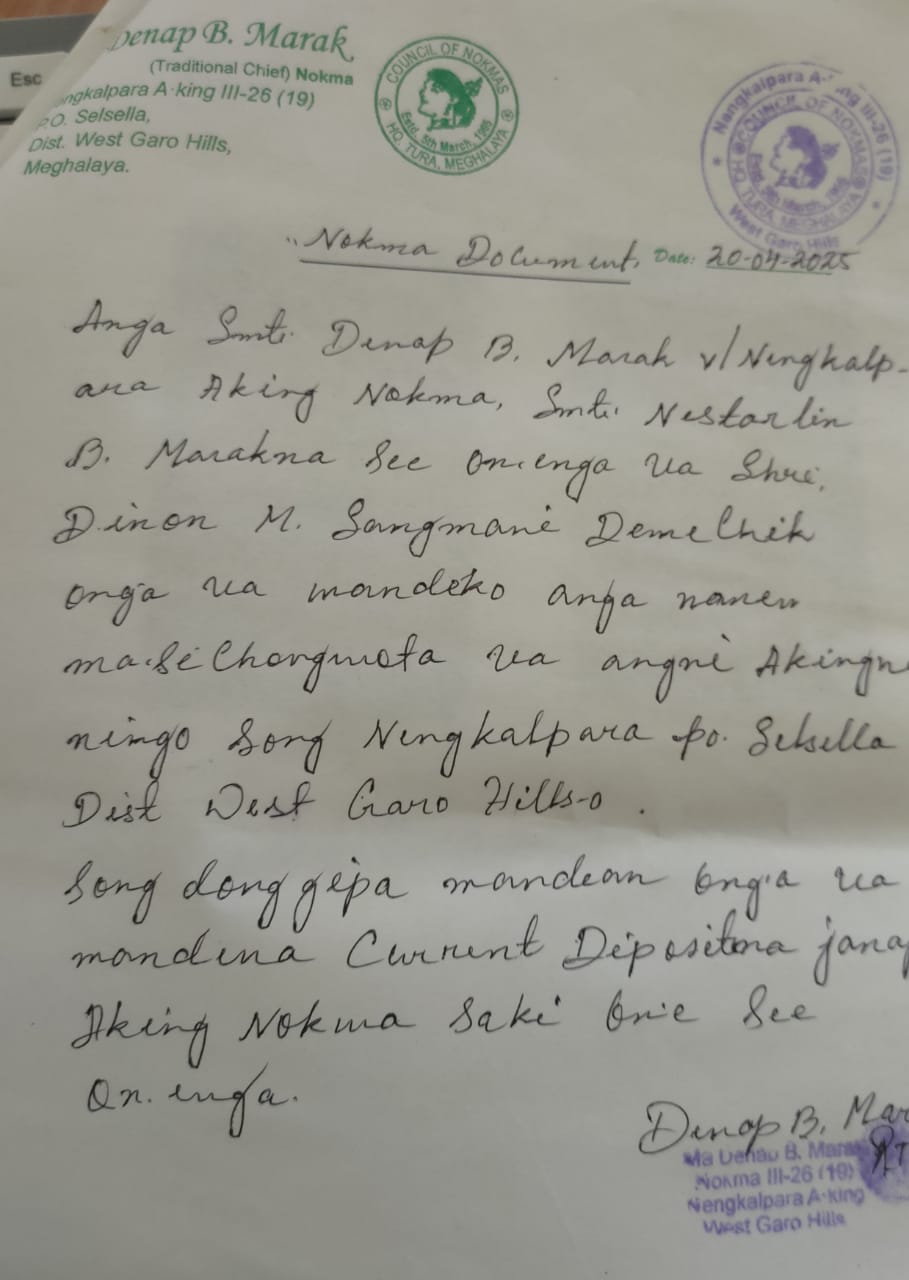 Esc
Denap B. Marak
(Traditional Chief) Nokma
engkalpara A·king III-26 (19)
P.O. Selsella,
Dist. West Garo Hills,
Meghalaya.
COUNCIL OF NOKMAS
Estd. 5th March, 1986
HQ. TURA, MEGHALAYA
Nengkalpara A·king III-26 (19)
COUNCIL OF NOKMAS
TURA, MEGHALAYA
West Garo Hills
"Nokma Document, Date: 20-04-2025
Anga Smti. Denap B. Marak v/Nengkalp-
ara Aking Nokma, Smti. Nestarlin
B. Marakna See on.enga ua Shri.
Dinon M. Sangmani DemeChik
onga ua mandeko anga namen
ma.siChongmota ua angni Akingni
ningo Song Nengkalpara po. Selsella
Dist West Garo Hills-o.
Song donggipa mandean ong.a ua
mandena Current Depositna
Aking Nokma Saki on.e See
On.enga.
Denap B. Mar
Ma Denap B. Marak
Nokma III-26 (19)
Nengkalpara A·king
West Garo Hills